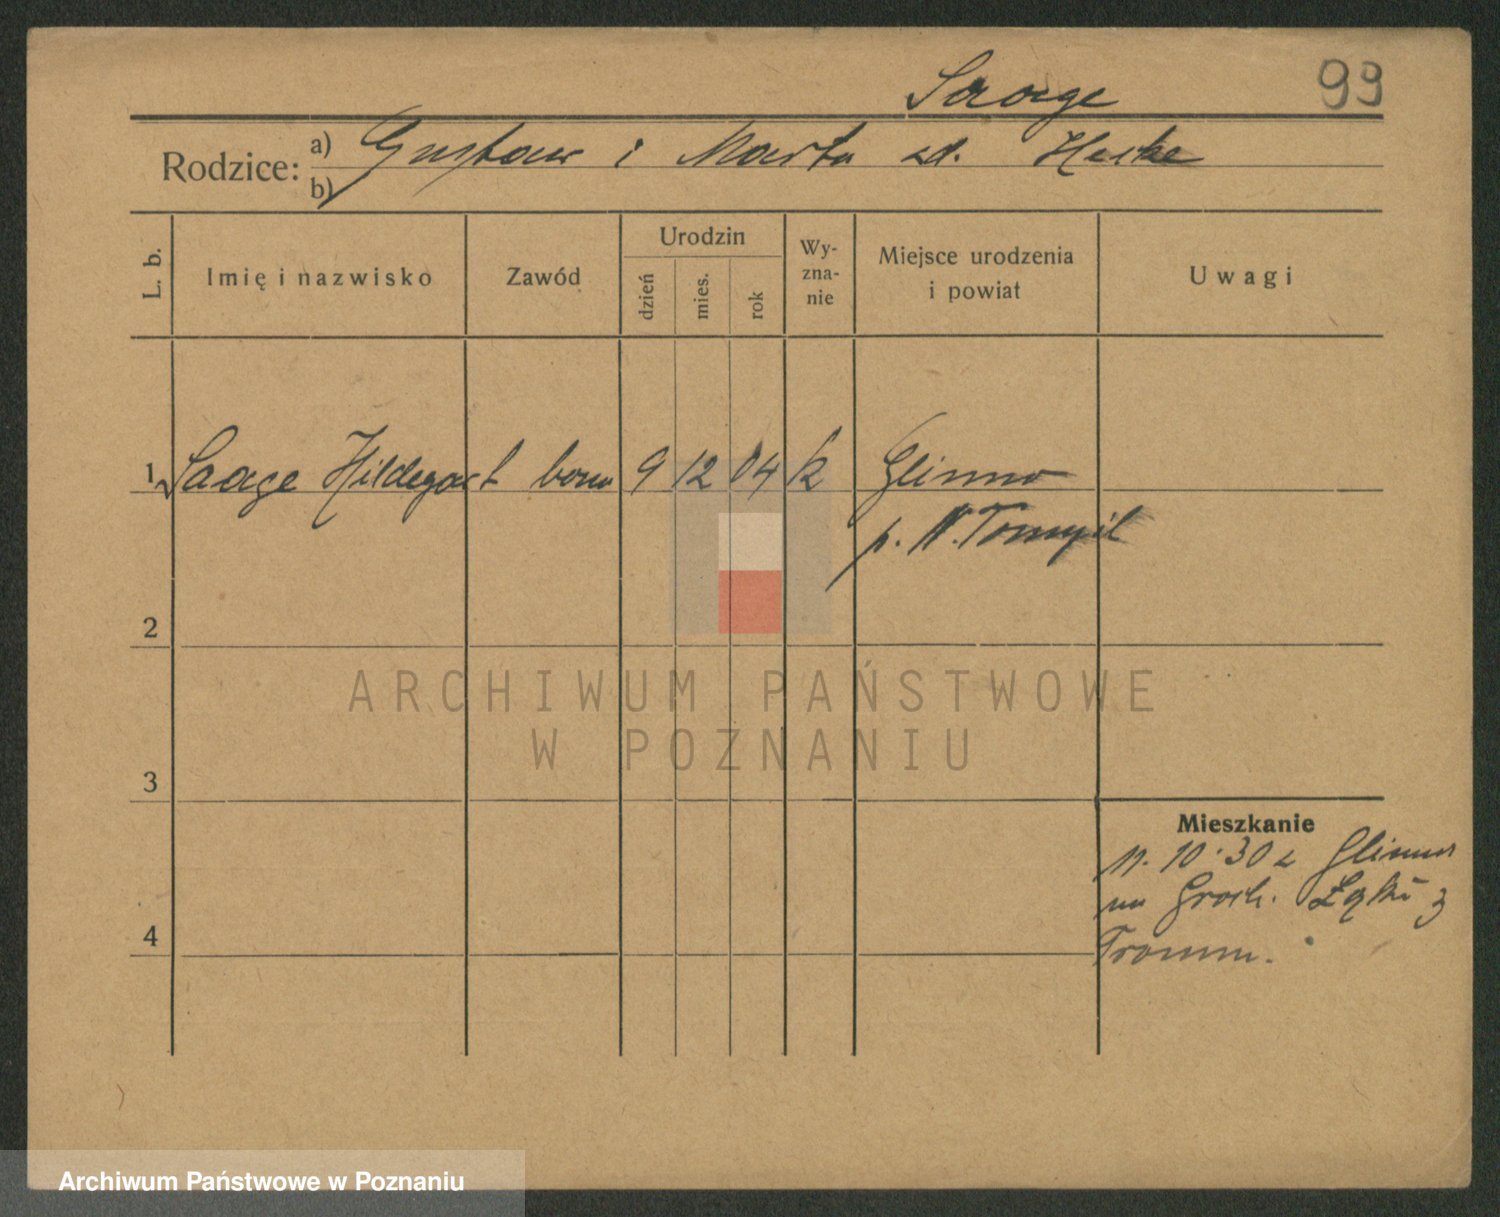 Saage 99
Rodzice: a) Gustaw i Marta zd. Heske
b)
L. b. Imię i nazwisko Zawód Urodzin dzień mies. rok Wy-zna-nie Miejsce urodzenia i powiat Uwagi
1 Saage Hildegart bona 9 12 04 k Glinno
p. N. Tomyśl
2
ARCHIWUM PAŃSTWOWE
W POZNANIU
3
Mieszkanie
11. 10. 30 z Glinna
na Groch. Łąki 3
4
Tromm.
Archiwum Państwowe w Poznaniu